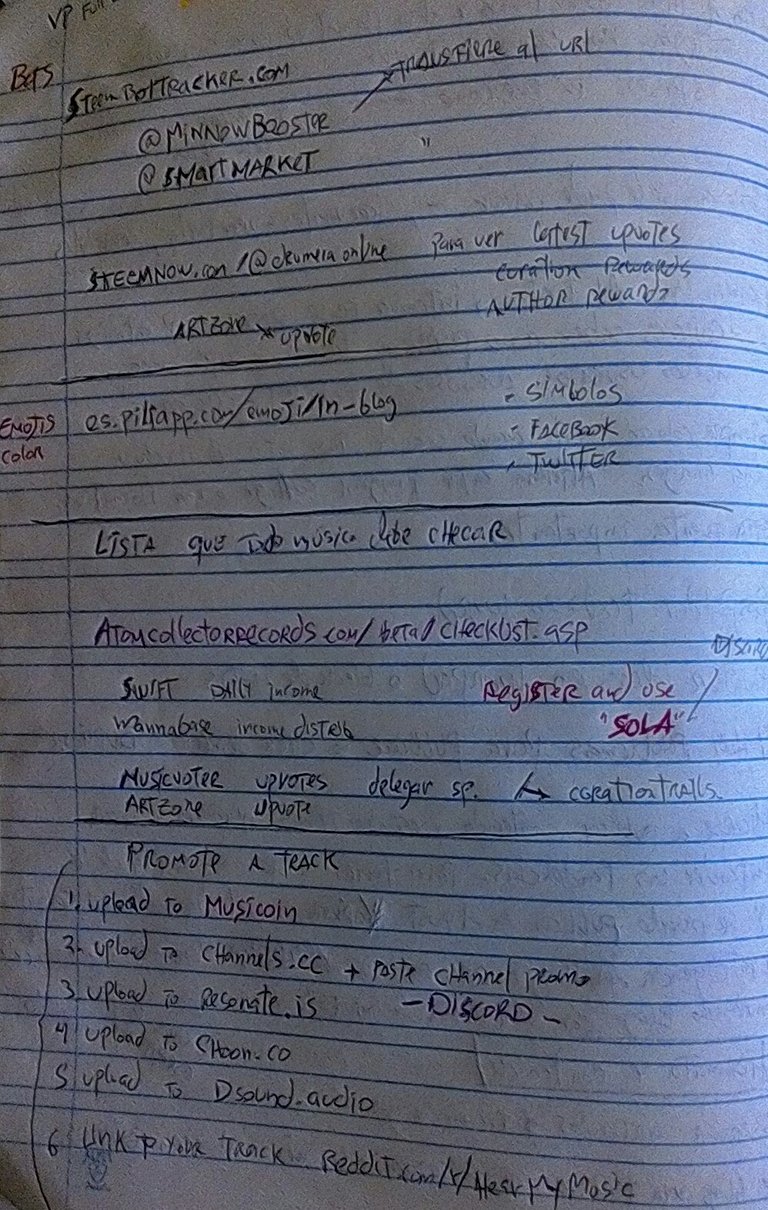 VP Full
BOTS
STEEMBOTTRACKER.COM
TRANSFIERE al URL
@MINNOWBOOSTER
@SMARTMARKET "
STEEMNOW.com/@ckumeraonline Para ver latest upvotes
curation Rewards
AUTHOR Rewards
ARTZONE upvote
EMOJIS color
es.piliapp.com/emoji/in-blog
- SIMBOLOS
- FACEBOOK
- TWITTER
LISTA que todo músico debe CHECAR
Atomcollectorrecords.com/beta/CHECKLIST.asp
DISCORD
SWIFT DAILY income
REGISTER and use
"SOLA"
Wannabase income
MUSICVOTER UPVOTES delegar sp. curation trails
ARTZONE UPVOTE
PROMOTE A TRACK
1. upload to Musicoin
2. upload to CHannels.cc + PASTE CHannel promo
3 upload to Resonate.is - DISCORD -
4 upload to CHoon.co
5 upload to Dsound.audio
6 Link to your Track Reddit.com/r/HearMyMusic